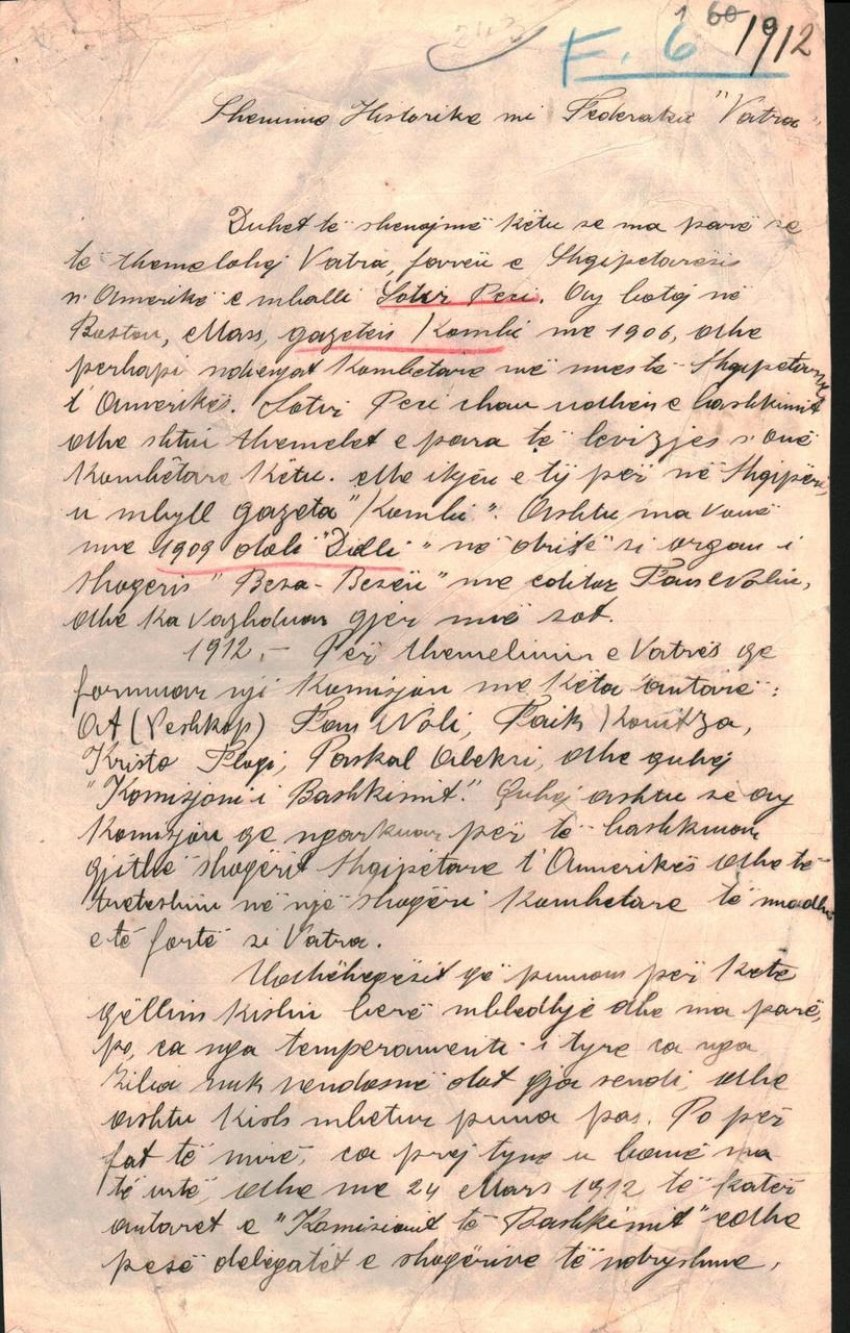 243 1 60
F. 6 1912
Shenime Historike mi Federaten "Vatra"
Duhet të shenojmë këtu se ma parë se
të themelohej Vatra, farrën e Shqipetarësis
n'Amerikë e mballi Sotir Peci. Ay botoj në
Boston, Mass, gazetën Kombi me 1906, dhe
perhapi ndjenjat Kombëtare në mes të Shqipetarve
t'Amerikës. Sotir Peci çhau udhën e bashkimit
dhe shtiu themelet e para të levizjes s'onë
Kombëtare këtu. Me ikjen e tij për në Shqipëri,
u mbyll gazeta "Kombi". Ashtu ma vonë
më 1909 doli "Dielli" në dritë si organ i
shoqëris "Besa-Besën" me editor Fan Nolin,
dhe ka vazhduar gjer më sot.
1912,- Për themelimin e Vatrës qe
formuar nji Komisjon me këta antarë:
At (Peshkop) Fan Noli, Faik Konitza,
Kristo Floqi, Paskal Aleksi, dhe quhej
"Komisjoni i Bashkimit." Quhej ashtu se ay
Komisjon qe ngarkuar për të bashkuar
gjithë shoqërit Shqipëtare t'Amerikës dhe të
treteshin në një shoqëri Kombetare të madhe
e të fortë si Vatra.
Udhëheqësit që punuan për këtë
qëllim kishin berë mbledhje dhe ma parë,
po, ca nga temperamenti i tyre ca nga
zilia nuk vendosnë dot gja sendi, dhe
ashtu kish mbetur puna pas. Po për
fat të mirë, ca prej tyne u banë ma
të urtë, dhe me 24 Mars 1912 të katër
antaret e "Komisionit të Bashkimit" edhe
pesë delegatët e shoqërive të ndryshme,